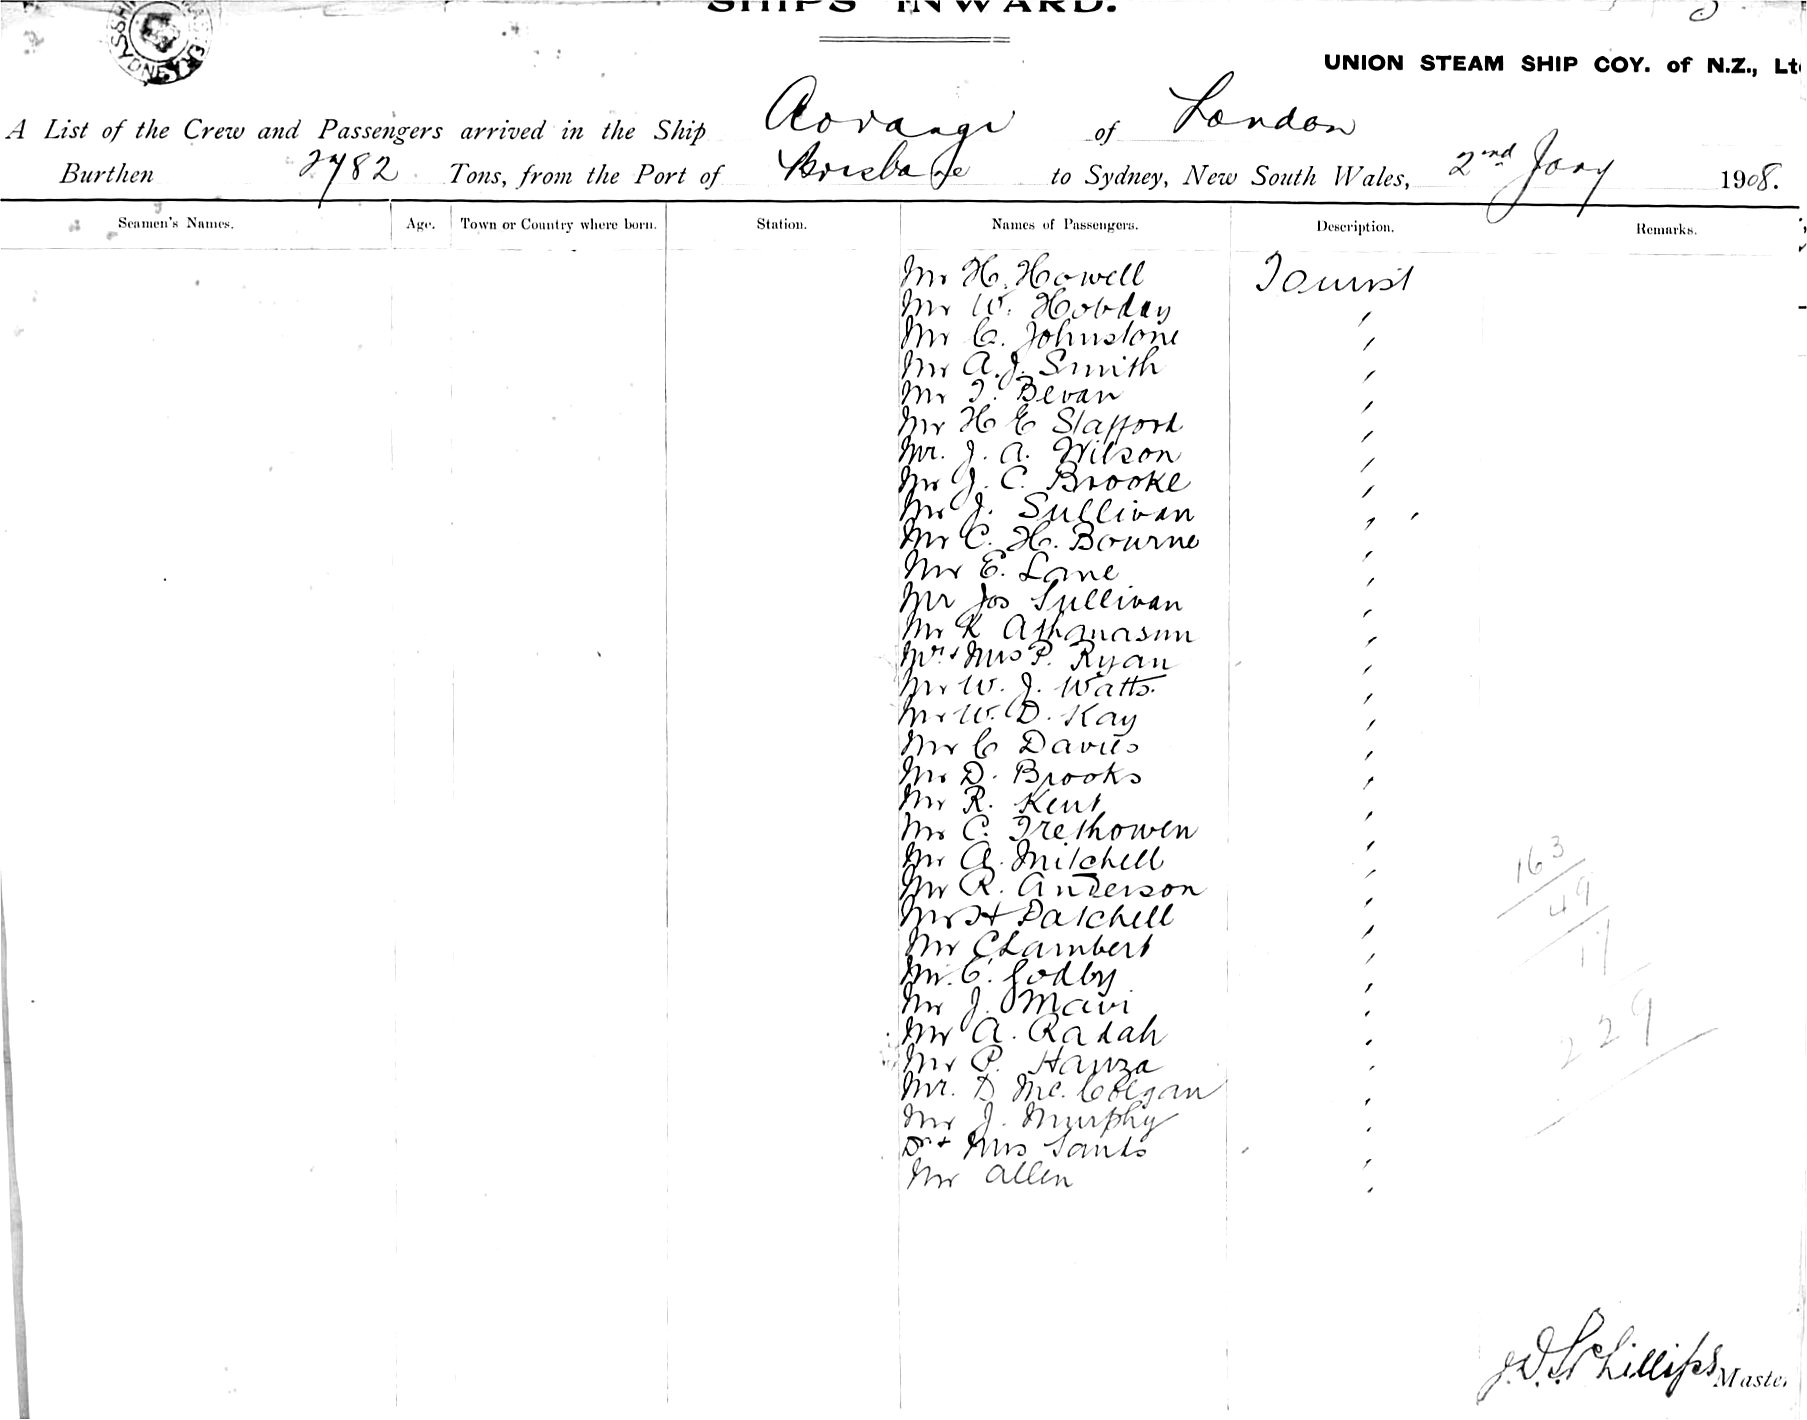 SHIPS INWARD.
UNION STEAM SHIP COY. of N.Z., Lt
A List of the Crew and Passengers arrived in the Ship Aorangi of London
Burthen 2782 Tons, from the Port of Brisbane to Sydney, New South Wales, 2nd Jany 1908.
Seamen's Names. Age. Town or Country where born. Station. Names of Passengers. Description. Remarks.
Mr H. Howell Tourist
Mr W. Hobday "
Mr C. Johnstone "
Mr A. J. Smith "
Mr T. Bevan "
Mr H E Stafford "
Mr. J. A. Wilson "
Mr J. C. Brooke "
Mr J. Sullivan "
Mr C. H. Bourne "
Mr E. Lane "
Mr Jos Sullivan "
Mr K Athanasun "
Mr + Mrs P. Ryan "
Mr W. J. Watts. "
Mr W. D. Kay "
Mr C Davies "
Mr D. Brooks "
Mr R. Kent "
Mr C. Trethowen "
Mr A. Mitchell "
Mr R. Anderson "
Mr H Patchell "
Mr C Lambert "
Mr. E. Godby "
Mr J. Mavi "
Mr A. Radah "
Mr P. Hanza "
Mr. D Mc. Colgan "
Mr J. Murphy "
Dr + Mrs Sands "
Mr Allen "
163
49
17
229
J. D. S. Phillips Master